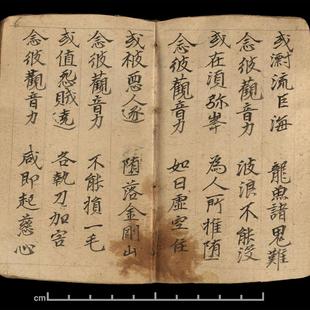 或漂流巨海　龍魚諸鬼難
念彼觀音力　波浪不能沒
或在須弥峯　為人所推堕
念彼觀音力　如日虛空住
或被惡人逐　堕落金剛山
念彼觀音力　不能損一毛
或值怨賊遶　各執刀加害
念彼觀音力　咸即起慈心
cm